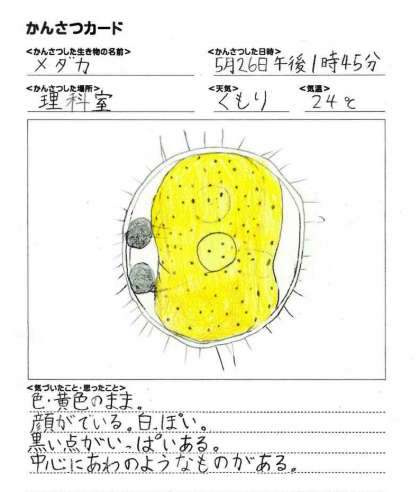 かんさつカード
<かんさつした生き物の名前> <かんさつした日時>
メダカ 5月26日午後1時45分
<かんさつした場所> <天気> <気温>
理科室 くもり 24℃
<気づいたこと・思ったこと>
色・黄色のまま。
顔がでいる。白っぽい。
黒い点がいっぱいある。
中心にあわのようなものがある。